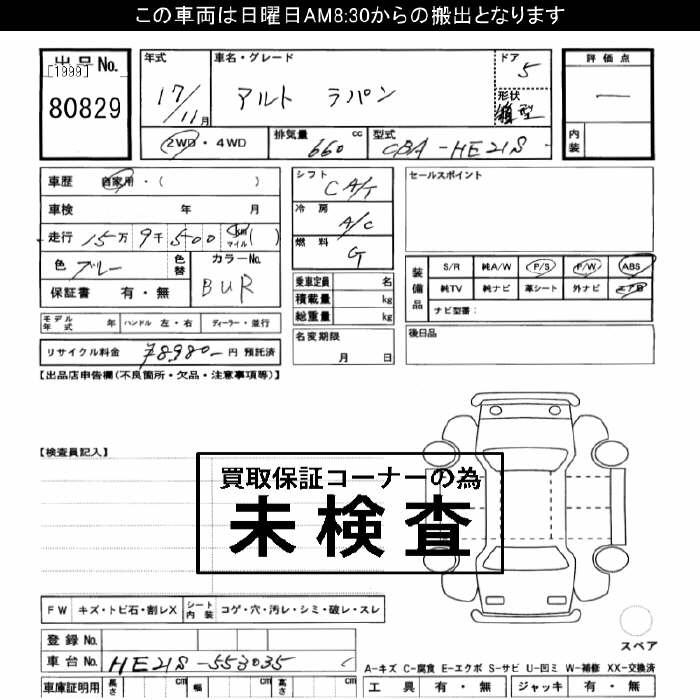 この車両は日曜日AM8:30からの搬出となります
出品No.
[1999]
80829
年式
17/11月
車名・グレード
アルト ラパン
ドア
5
形状
箱型
評価点
―
内装
2WD・4WD
排気量 660 cc
型式 CBA-HE21S
車歴 自家用・( )
車検 年 月
走行 15万9千500 km マイル ( )
色 ブルー
色替
カラーNo.
BUR
保証書 有・無
モデル年式 年 ハンドル 左・右 ディーラー・並行
リサイクル料金 78980- 円 預託済
シフト CA/T
冷房 A/C
燃料 G
乗車定員 名
積載量 kg
総重量 kg
名変期限
月 日
セールスポイント
装備品
S/R 純A/W P/S P/W ABS
純TV 純ナビ 革シート 外ナビ エアB
ナビ型番:
後日品
【出品店申告欄(不良箇所・欠品・注意事項等)】
【検査員記入】
買取保証コーナーの為
未検査
FW キズ・トビ石・割レX シート内装 コゲ・穴・汚レ・シミ・破レ・スレ
登録No.
車台No. HE21S-553035
車庫証明用 長さ cm 幅 cm 高さ cm
スペア
A-キズ C-腐食 E-エクボ S-サビ U-凹ミ W-補修 XX-交換済
工具 有・無 ジャッキ 有・無